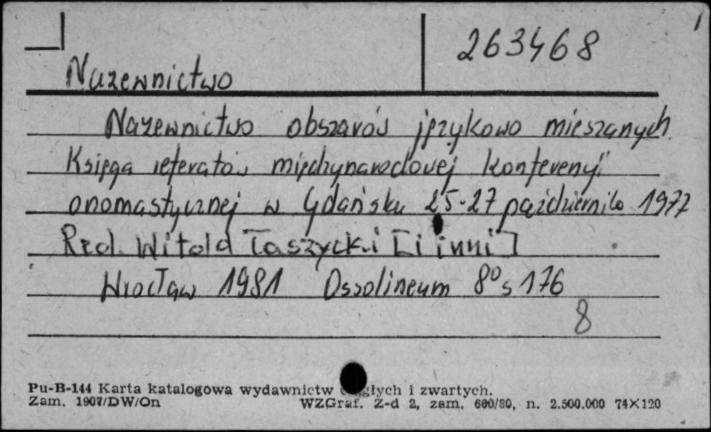 263468
Nazewnictwo
Nazewnictwo obszarów językowo mieszanych.
Księga referatów międzynarodowej konferencji
onomastycznej w Gdańsku 25-27 października 1977
Red. Witold Taszycki [i inni]
Wrocław 1981 Ossolineum 8° s 176
8
Pu-B-144 Karta katalogowa wydawnictw ciągłych i zwartych.
Zam. 1907/DW/On WZGraf. Z-d 2, zam. 600/80, n. 2.500.000 74×120